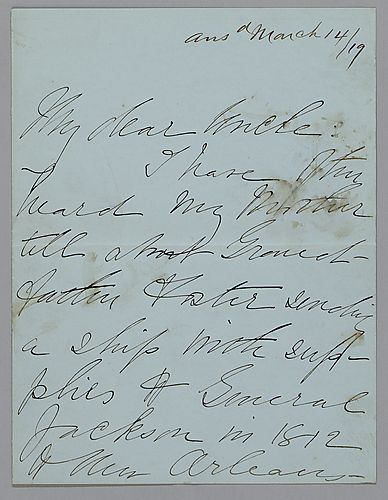 ansd March 14/19
My dear Uncle:
I have often
heard my Mother
tell about Grand-
father Foster sending
a ship with sup-
plies to General
Jackson in 1812
to New Orleans-